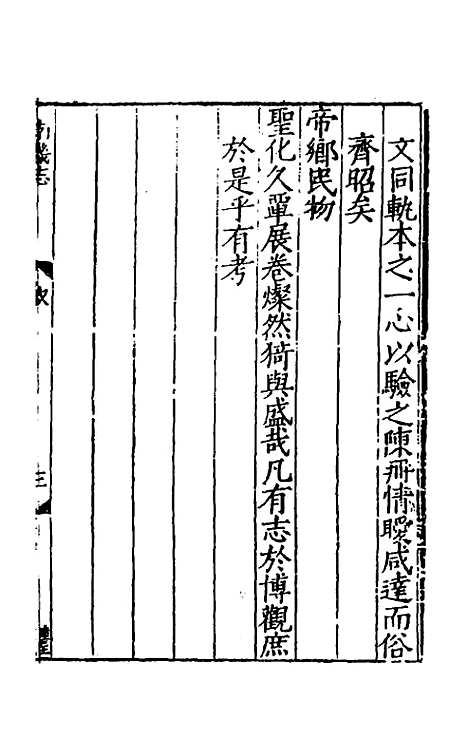 文同軌本之一心以驗之陳冊情曖咸達而俗
齊昭矣
帝鄉民物
聖化久單展卷燦然猗與盛哉凡有志於博觀庶
於是乎有考
志
三